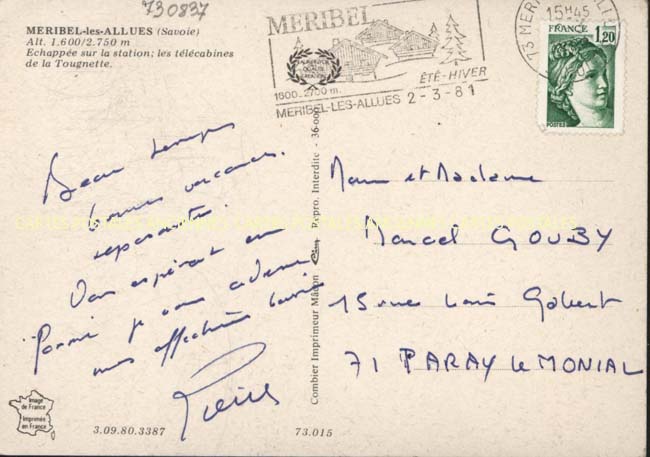 730837
MERIBEL-les-ALLUES (Savoie)
Alt. 1.600/2.750 m
Echappée sur la station; les télécabines
de la Tougnette.
MERIBEL
1600-2700 m.
ÉTÉ-HIVER
MERIBEL-LES-ALLUES 2-3-81
15H45
73 MER
FRANCE
1,20
POSTES
Beau temps
bonnes vacances
reposantes.
Vous espérant en
forme je vous adresse
mes affectueux
Pierre
Combier Imprimeur Mâcon Cim Repro. Interdite - 36-000
Monsieur et Madame
Marcel GOUBY
15 rue Louis Gabert
71 PARAY le MONIAL
Image
de France
Imprimée
en France
3.09.80.3387
73.015